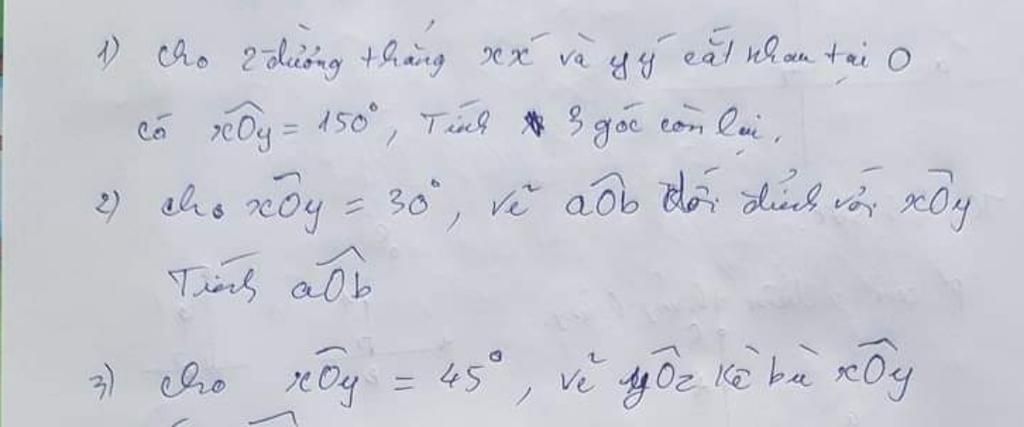 1) cho 2 đường thẳng xx' và yy' cắt nhau tại O
có xÔy = 150°, Tính 3 góc còn lại.
2) cho xÔy = 30°, vẽ aÔb đối đỉnh với xÔy
Tính aÔb
3) cho xÔy = 45°, vẽ yÔz kề bù xÔy